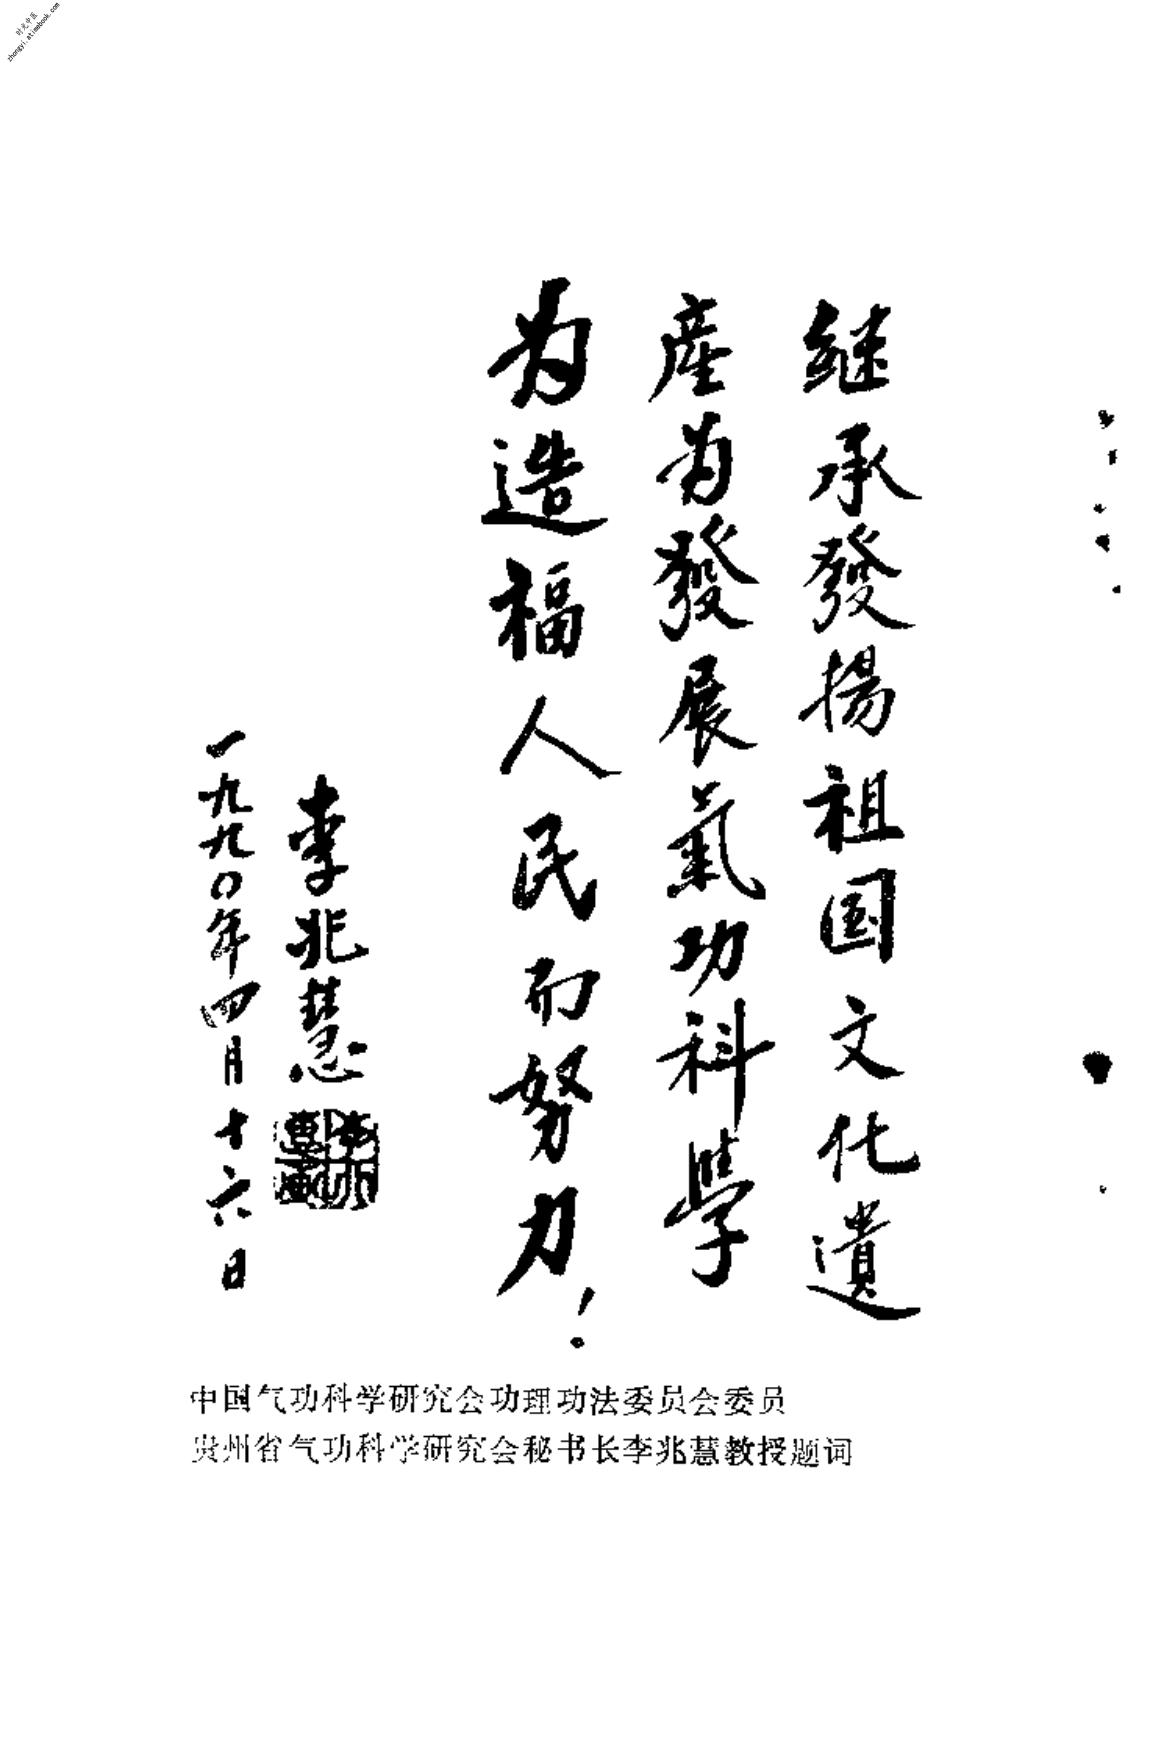 时光中医
zhongyi.atimebook.com
继承發揚祖国文化遺
産为發展氣功科學
为造福人民而努力！
李兆慧
一九九〇年四月十六日
中国气功科学研究会功理功法委员会委员
贵州省气功科学研究会秘书长李兆慧教授题词